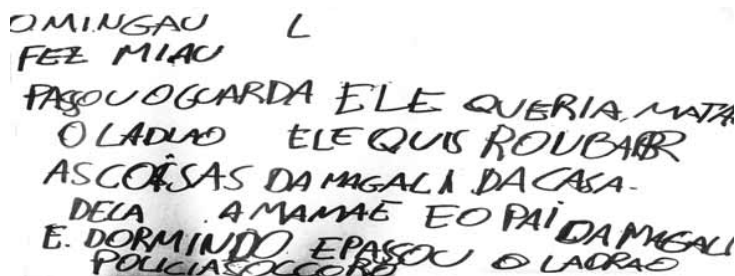 O MINGAU L
FEZ MIAU
PASOU O GUARDA ELE QUERIA MATA
O LADLAO ELE QUIS ROUBAR
AS COISAS DA MAGALI DA CASA.
DELA A MAMAE E O PAI DA MAGALI
E. DORMINDO EPASSOU O LADRAO
POLICIA SOCCORO